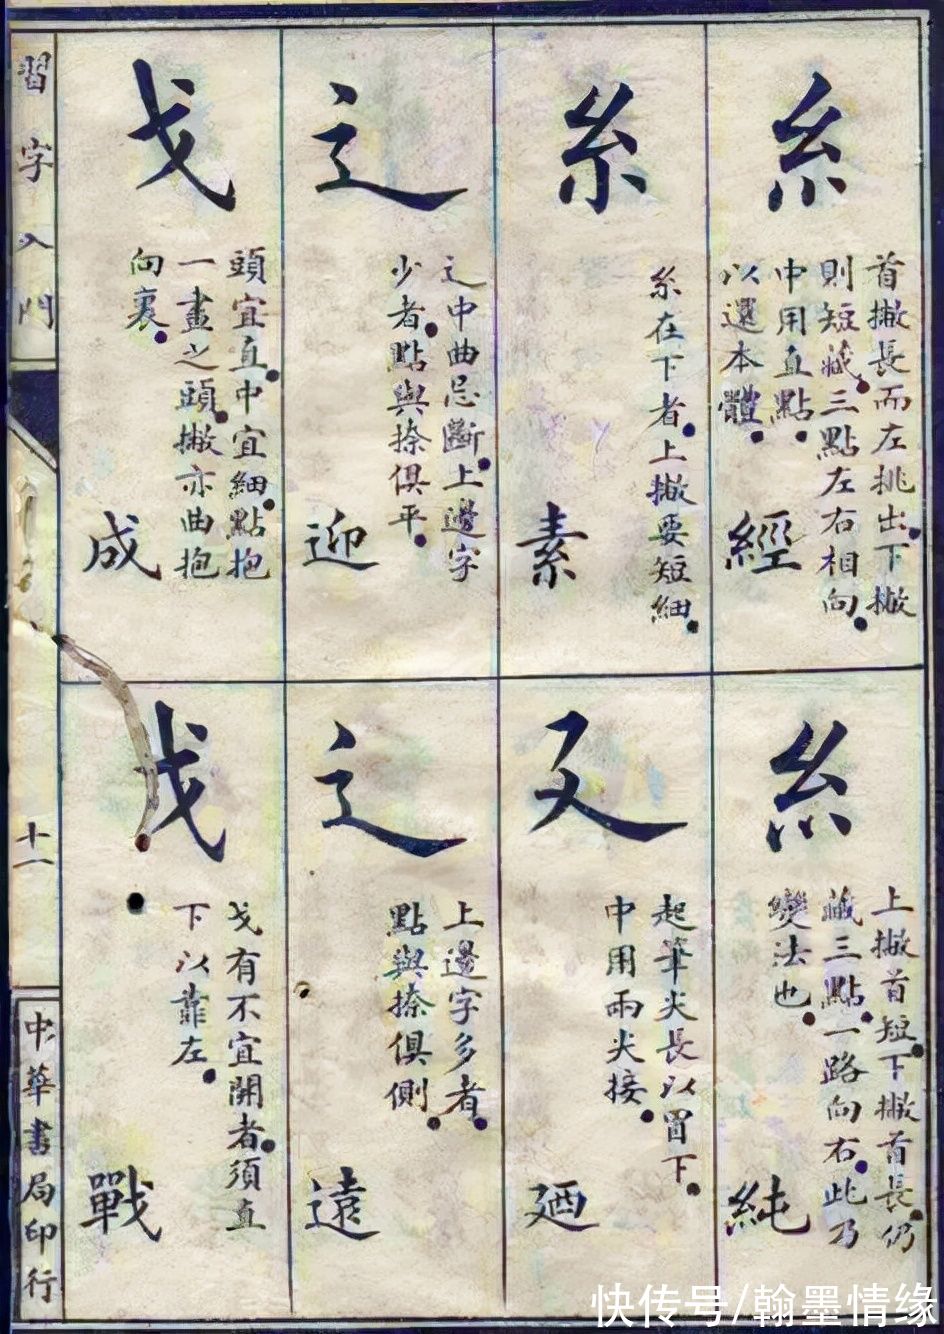 糹
首撇長而左挑出下撇
則短藏三點左右相向
中用直點
以還本體
經
糸
糸在下者上撇要短細
素
辶
辶中曲忌斷上邊字
少者點與捺俱平
迎
戈
頭宜直中宜細點抱
一畫之頭撇亦曲抱
向裏
成
糹
上撇首短下撇首長仍
藏三點一路向右此乃
變法也
純
廴
起筆尖長以冒下
中用兩尖接
廼
辶
上邊字多者
點與捺俱側
遠
戈
戈有不宜開者須直
下以靠左
戰
習字入門
十一
中華書局印行
快传号/翰墨情缘